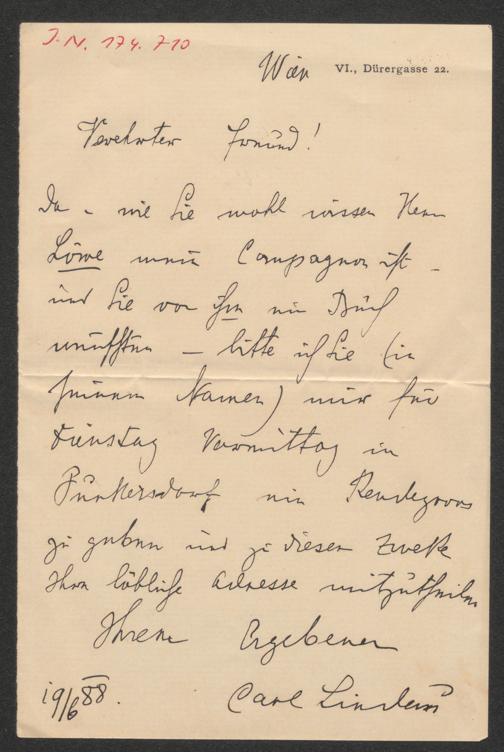 J.N. 174.710
Wien VI., Dürergasse 22.
Verehrter Freund!
Da – wie Sie wohl wissen Herr
Löwe mein Compagnon ist –
und Sie von ihm ein Buch
– bitte ich Sie (in
seinem Namen) mir für
Dienstag Vormittag in
Purkersdorf ein Rendezvous
zu geben und zu diesem Zwecke
Ihre löbliche Adresse mitzutheilen
Ihrem Ergebenen
19/6 88. Carl Lindau